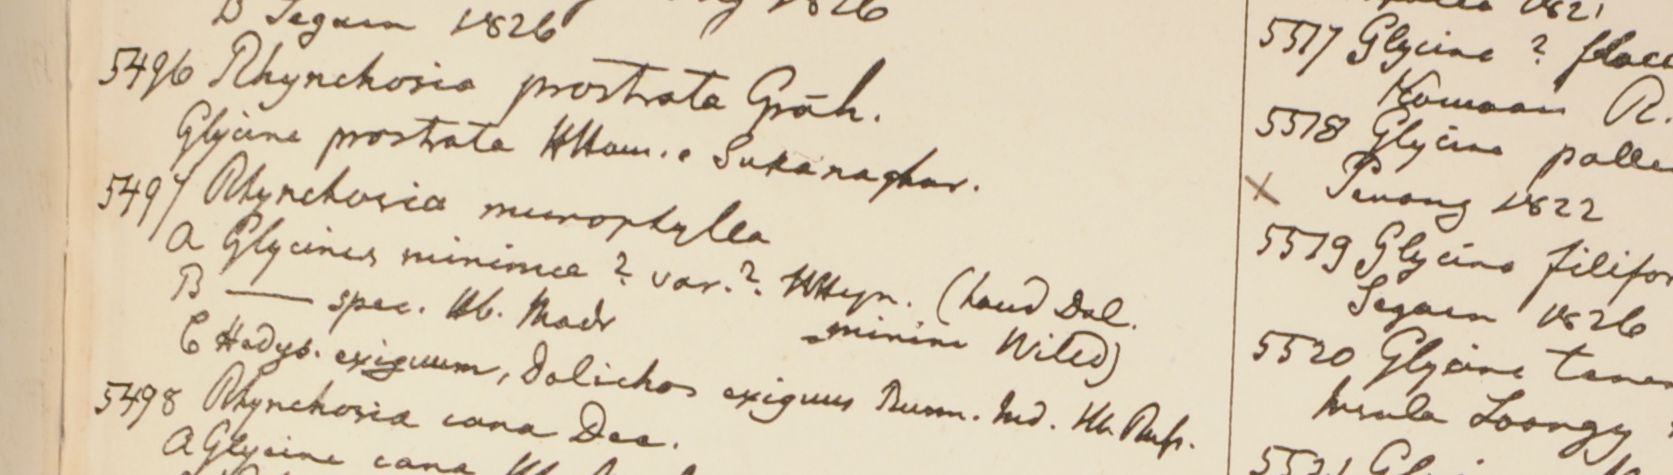 B Segaen 1826
1826
5496 Rhynchosia prostrata Grāh.
Glycine prostrata HHam. e Sukanaghur.
5497 Rhynchosia microphylla
A Glycines minimea ? var. ?. HHeyn. (haud Dol.
minimi Willd)
B —— spec. Hb. Madr
C Hedys. exiguum, Dolichos exiguus Hb. Roxb.
5498 Rhynchosia cana Dec.
A Glycine cana Hb.
1821
5517 Glycine ? flacc
Kamaon R.
5518 Glycine palle
x Penang 1822
5519 Glycine filifor
Segaen 1826
5520 Glycine tene
Insula Loongy
5521 Glyci